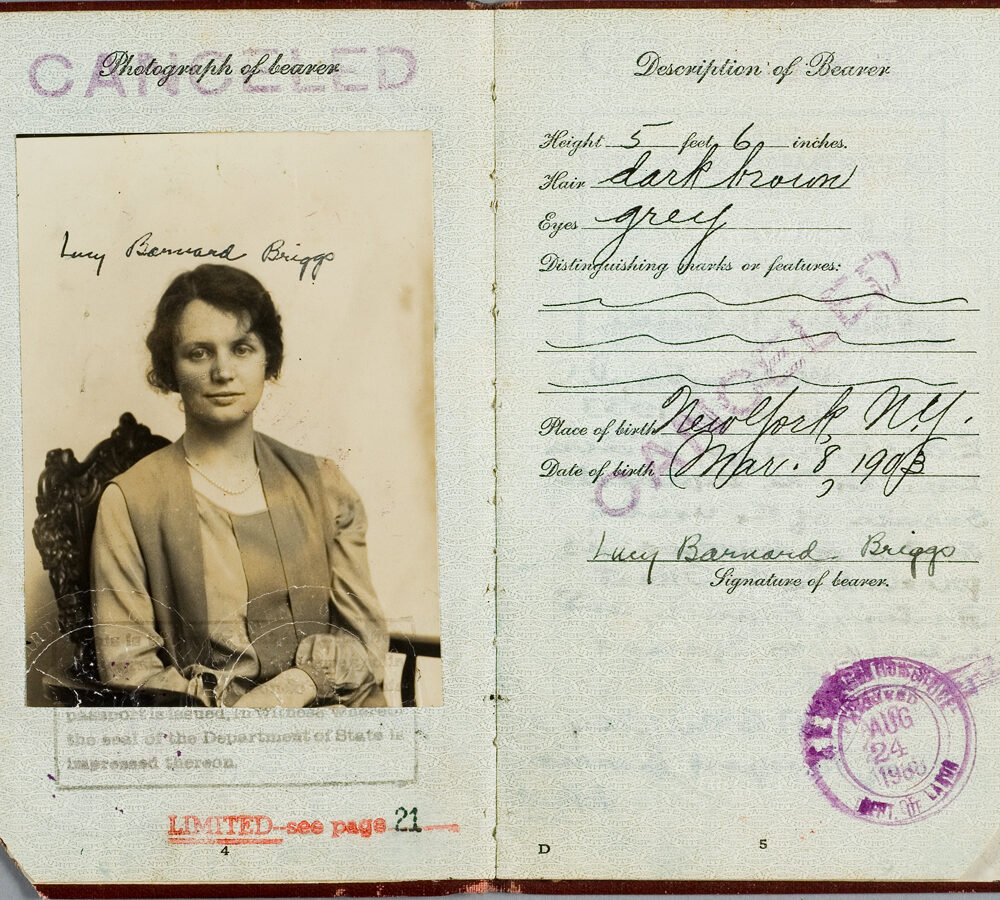 CANCELED
Photograph of bearer
Lucy Barnard Briggs
passport is issued, in witness whereof
the seal of the Department of State is
impressed thereon.
LIMITED--see page 21
4
Description of Bearer
Height 5 feet 6 inches.
Hair dark brown
Eyes grey
Distinguishing marks or features:
CANCELED
Place of birth New York, N.Y.
Date of birth Mar. 8, 1903
Lucy Barnard Briggs
Signature of bearer.
AUG
24
DEPT. OF LABOR
D
5